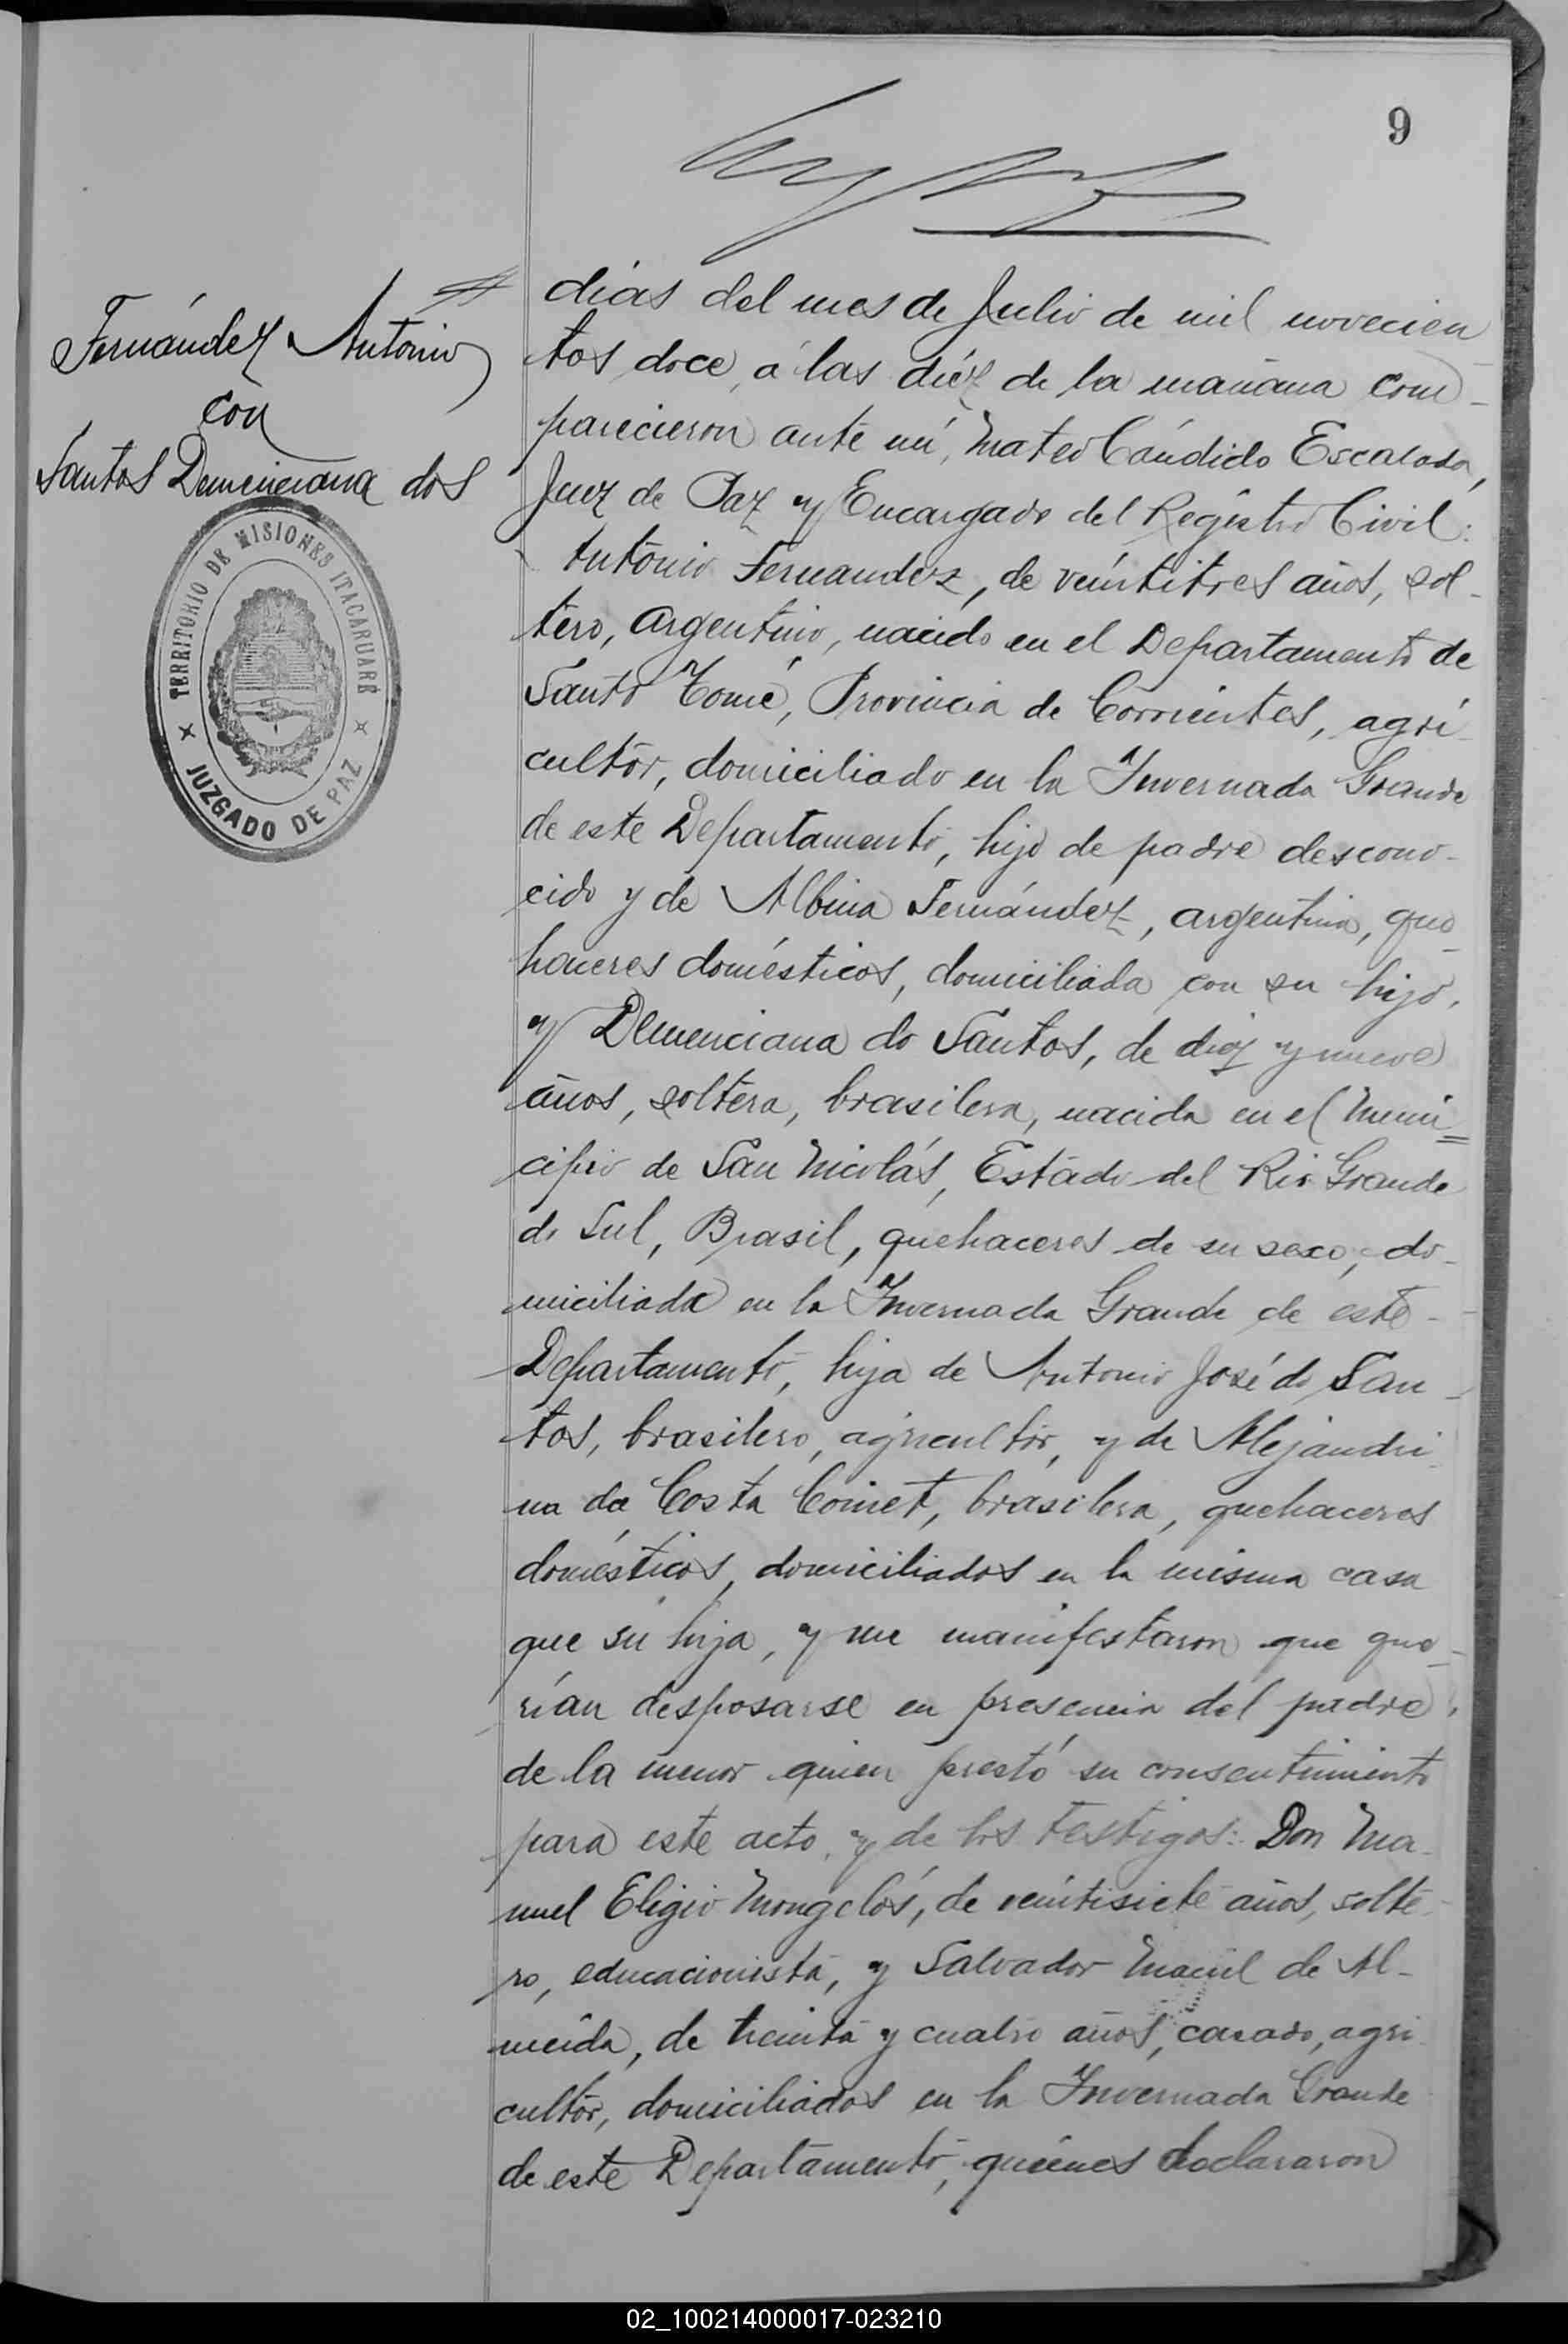 9
Fernández Antonio
con
Santos Demenciana dos
TERRITORIO DE MISIONES ITACARUARÉ
JUZGADO DE PAZ
días del mes de Julio de mil novecien
tos doce, a las diéz de la mañana com-
parecieron ante mí, Mateo Cándido Escalada,
Juez de Paz y Encargado del Registro Civil:
Antonio Fernandez, de veintitres años, sol-
tero, argentino, nacido en el Departamento de
Santo Tomé, Provincia de Corrientes, agri-
cultor, domiciliado en la Invernada Grande
de este Departamento, hijo de padre descono-
cido y de Albina Fernández, argentina, que-
haceres domésticos, domiciliada con su hijo,
y Demenciana do Santos, de diez y nueve
años, soltera, brasilera, nacida en el Muni=
cipio de San Nicolás, Estado del Rio Grande
do Sul, Brasil, quehaceres de su sexo, do-
miciliada en la Invernada Grande de este-
Departamento, hija de Antonio José do San-
tos, brasilero, agricultor, y de Alejandri-
na da Costa Coimet, brasilera, quehaceres
domésticos, domiciliados en la misma casa
que su hija, y me manifestaron que que-
rían desposarse en presencia del padre
de la menor quien prestó su consentimiento
para este acto, y de los testigos: Don Ma-
nuel Eligio Mongelós, de veintisiete años, solte-
ro, educacionista, y Salvador Maciel de Al-
meida, de treinta y cuatro años, casado, agri-
cultor, domiciliados en la Invernada Grande
de este Departamento, quienes declararon
02_100214000017-023210